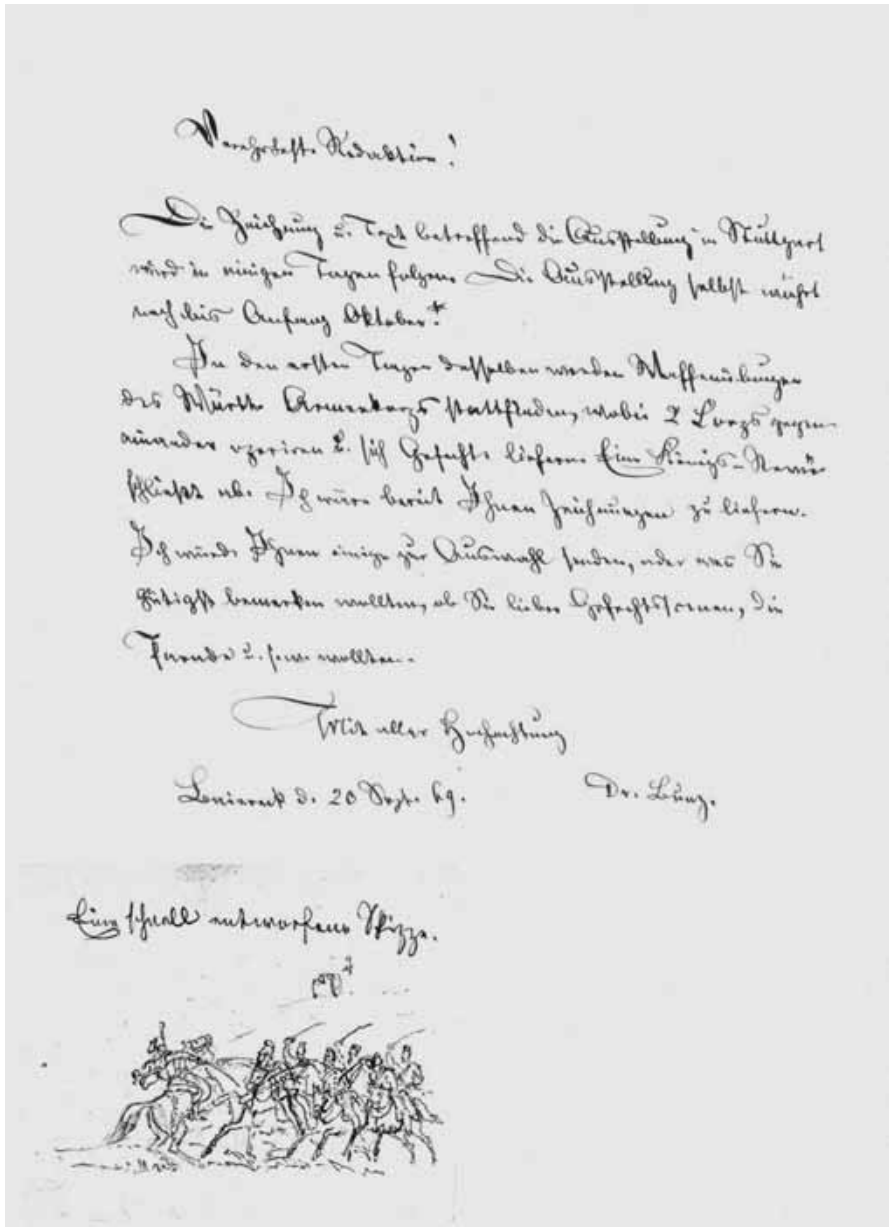 Verehrteste Redaktion!
Die Zeichnung u. Text betreffend die Ausstellung in Stuttgart
wird in einigen Tagen folgen. Die Ausstellung selbst währt
noch bis Anfang Oktober.
In den ersten Tagen desselben werden Waffenübungen
des Württ. Armeekorps stattfinden, wobei 2 Corps gegen
einander operiren u. sich Gefechte liefern. Eine Königs-Revüe
schließt ab. Ich wäre bereit Ihnen Zeichnungen zu liefern.
Ich würde Ihnen einige zur Auswahl senden, oder was Sie
gütigst bemerken wollten, ob Sie lieber Gefechtsscenen, die
Parade u.s.w. wollten.
Mit aller Hochachtung
d. 20 Sept. 69. Dr. Bunz.
Eine schnell entworfene Skizze.